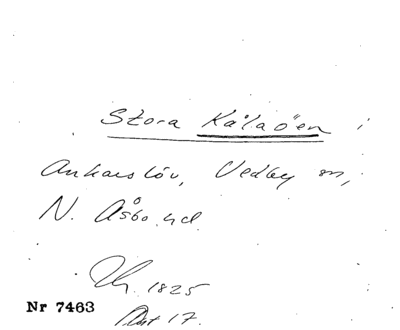 Stora Kålaöen i
Ankarslöv, Vedby sn,
N. Åsbo hd.
1825
Akt 17.
Nr 7463